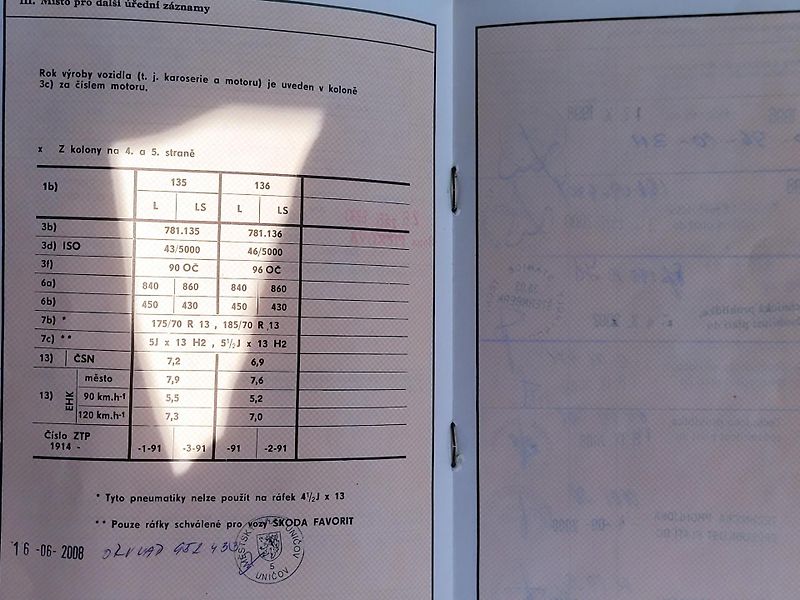 III. Místo pro další úřední záznamy
Rok výroby vozidla (t. j. karoserie a motoru) je uveden v koloně
3c) za číslem motoru.
x Z kolony na 4. a 5. straně
1b) 135 136
L LS L LS
3b) 781.135 781.136
3d) ISO 43/5000 46/5000
3f) 90 OČ 96 OČ
6a) 840 860 840 860
6b) 450 430 450 430
7b) * 175/70 R 13 , 185/70 R 13
7c) ** 5J x 13 H2 , 5½J x 13 H2
13) ČSN 7,2 6,9
13) EHK město 7,9 7,6
90 km.h-¹ 5,5 5,2
120 km.h-¹ 7,3 7,0
Číslo ZTP
1914 - -1-91 -3-91 -91 -2-91
* Tyto pneumatiky nelze použít na ráfek 4½J x 13
** Pouze ráfky schválené pro vozy ŠKODA FAVORIT
16 -06- 2008
UNIČOV
5